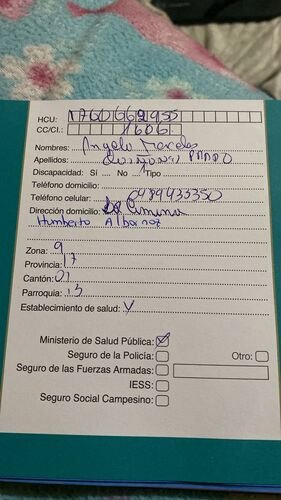 HCU: 1760669955
CC/CI.: 1606
Nombres: Angelo Marcelo
Apellidos: Quiñonez PARDO
Discapacidad: Sí .... No .... Tipo
Teléfono domicilio:
Teléfono celular: 0989433350
Dirección domicilio: La Comuna
Humberto Albornoz
Zona: 9
Provincia: 17
Cantón: 01
Parroquia: 13
Establecimiento de salud: Y
Ministerio de Salud Pública:
Seguro de la Policía: Otro:
Seguro de las Fuerzas Armadas:
IESS:
Seguro Social Campesino: